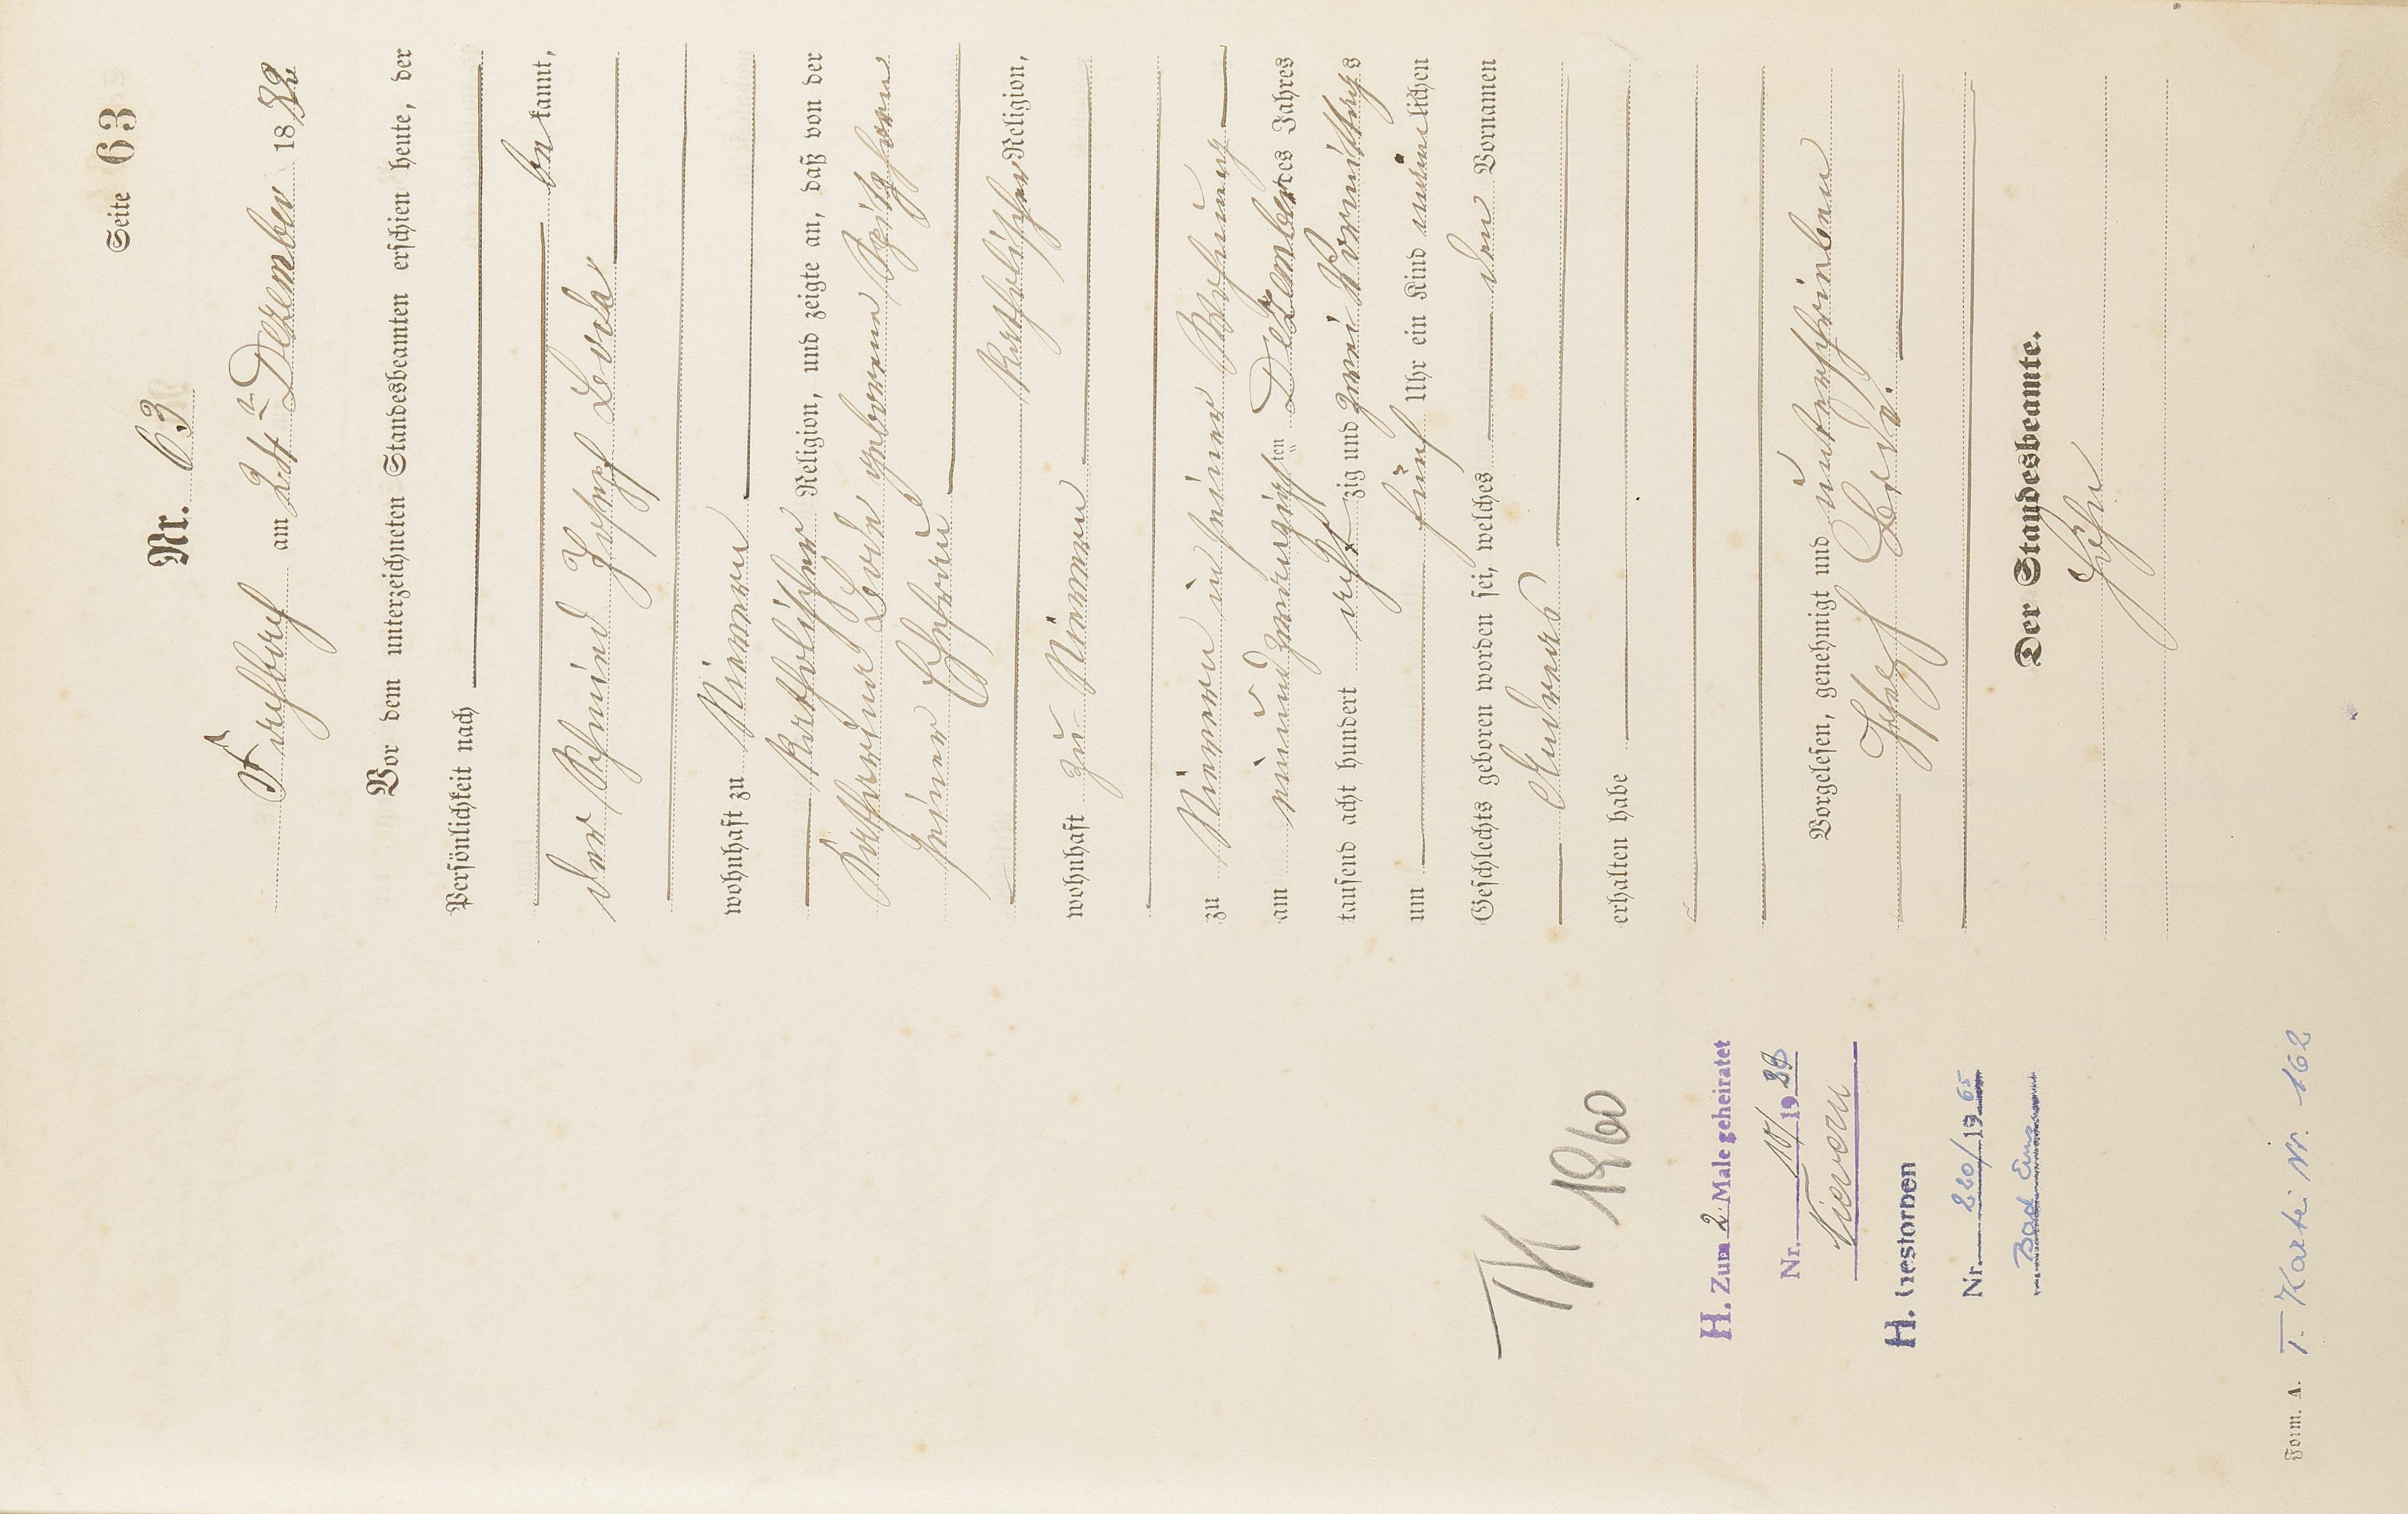 Seite 63
Nr. 63
Fachbach am 24ten Dezember 1882
Vor dem unterzeichneten Standesbeamten erschien heute, der
Persönlichkeit nach
bekannt,
der Schmied Joseph
wohnhaft zu Nievern
katholischer Religion, und zeigte an, daß von der
Katharina geborene
seiner Ehefrau
katholischer Religion,
wohnhaft zu Nievern
zu Nievern in seiner Wohnung
am neunundzwanzigsten Dezember des Jahres
tausend acht hundert achtzig und zwei Vormittags
um fünf Uhr ein Kind männlichen
Geschlechts geboren worden sei, welches den Vornamen
Andreas
erhalten habe
Vorgelesen, genehmigt und unterschrieben
Joseph
Der Standesbeamte.
TK 1960
H. Zum 2. Male geheiratet
Nr. 10/1939
Nievern
H. Gestorben
Nr. 220/1965
Bad Ems
Form. A.
T. Kartei Nr. 162